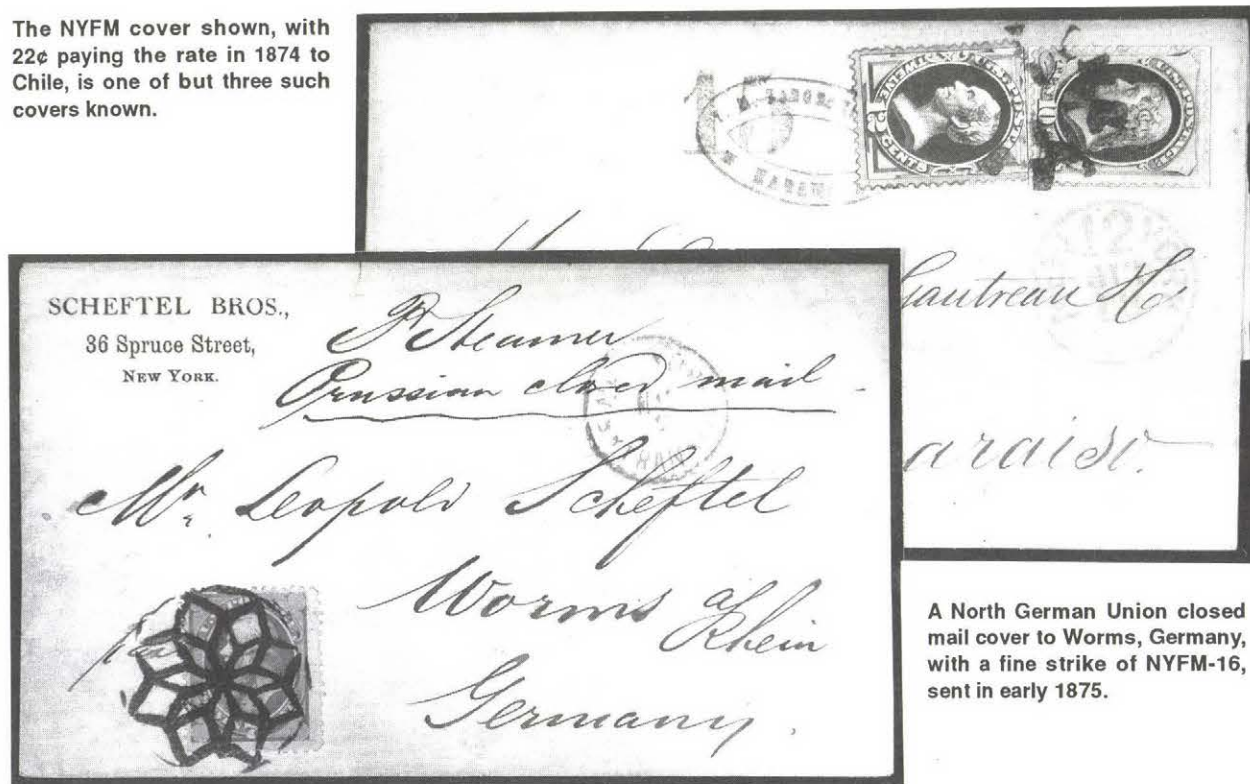 The NYFM cover shown, with
22¢ paying the rate in 1874 to
Chile, is one of but three such
covers known.
CENTS
Gautreau
araiso.
SCHEFTEL BROS.,
36 Spruce Street,
NEW YORK.
P Steamer
Prussian closed mail
Mr. Leopold Scheftel
Worms a/
Rhein
Germany.
A North German Union closed
mail cover to Worms, Germany,
with a fine strike of NYFM-16,
sent in early 1875.